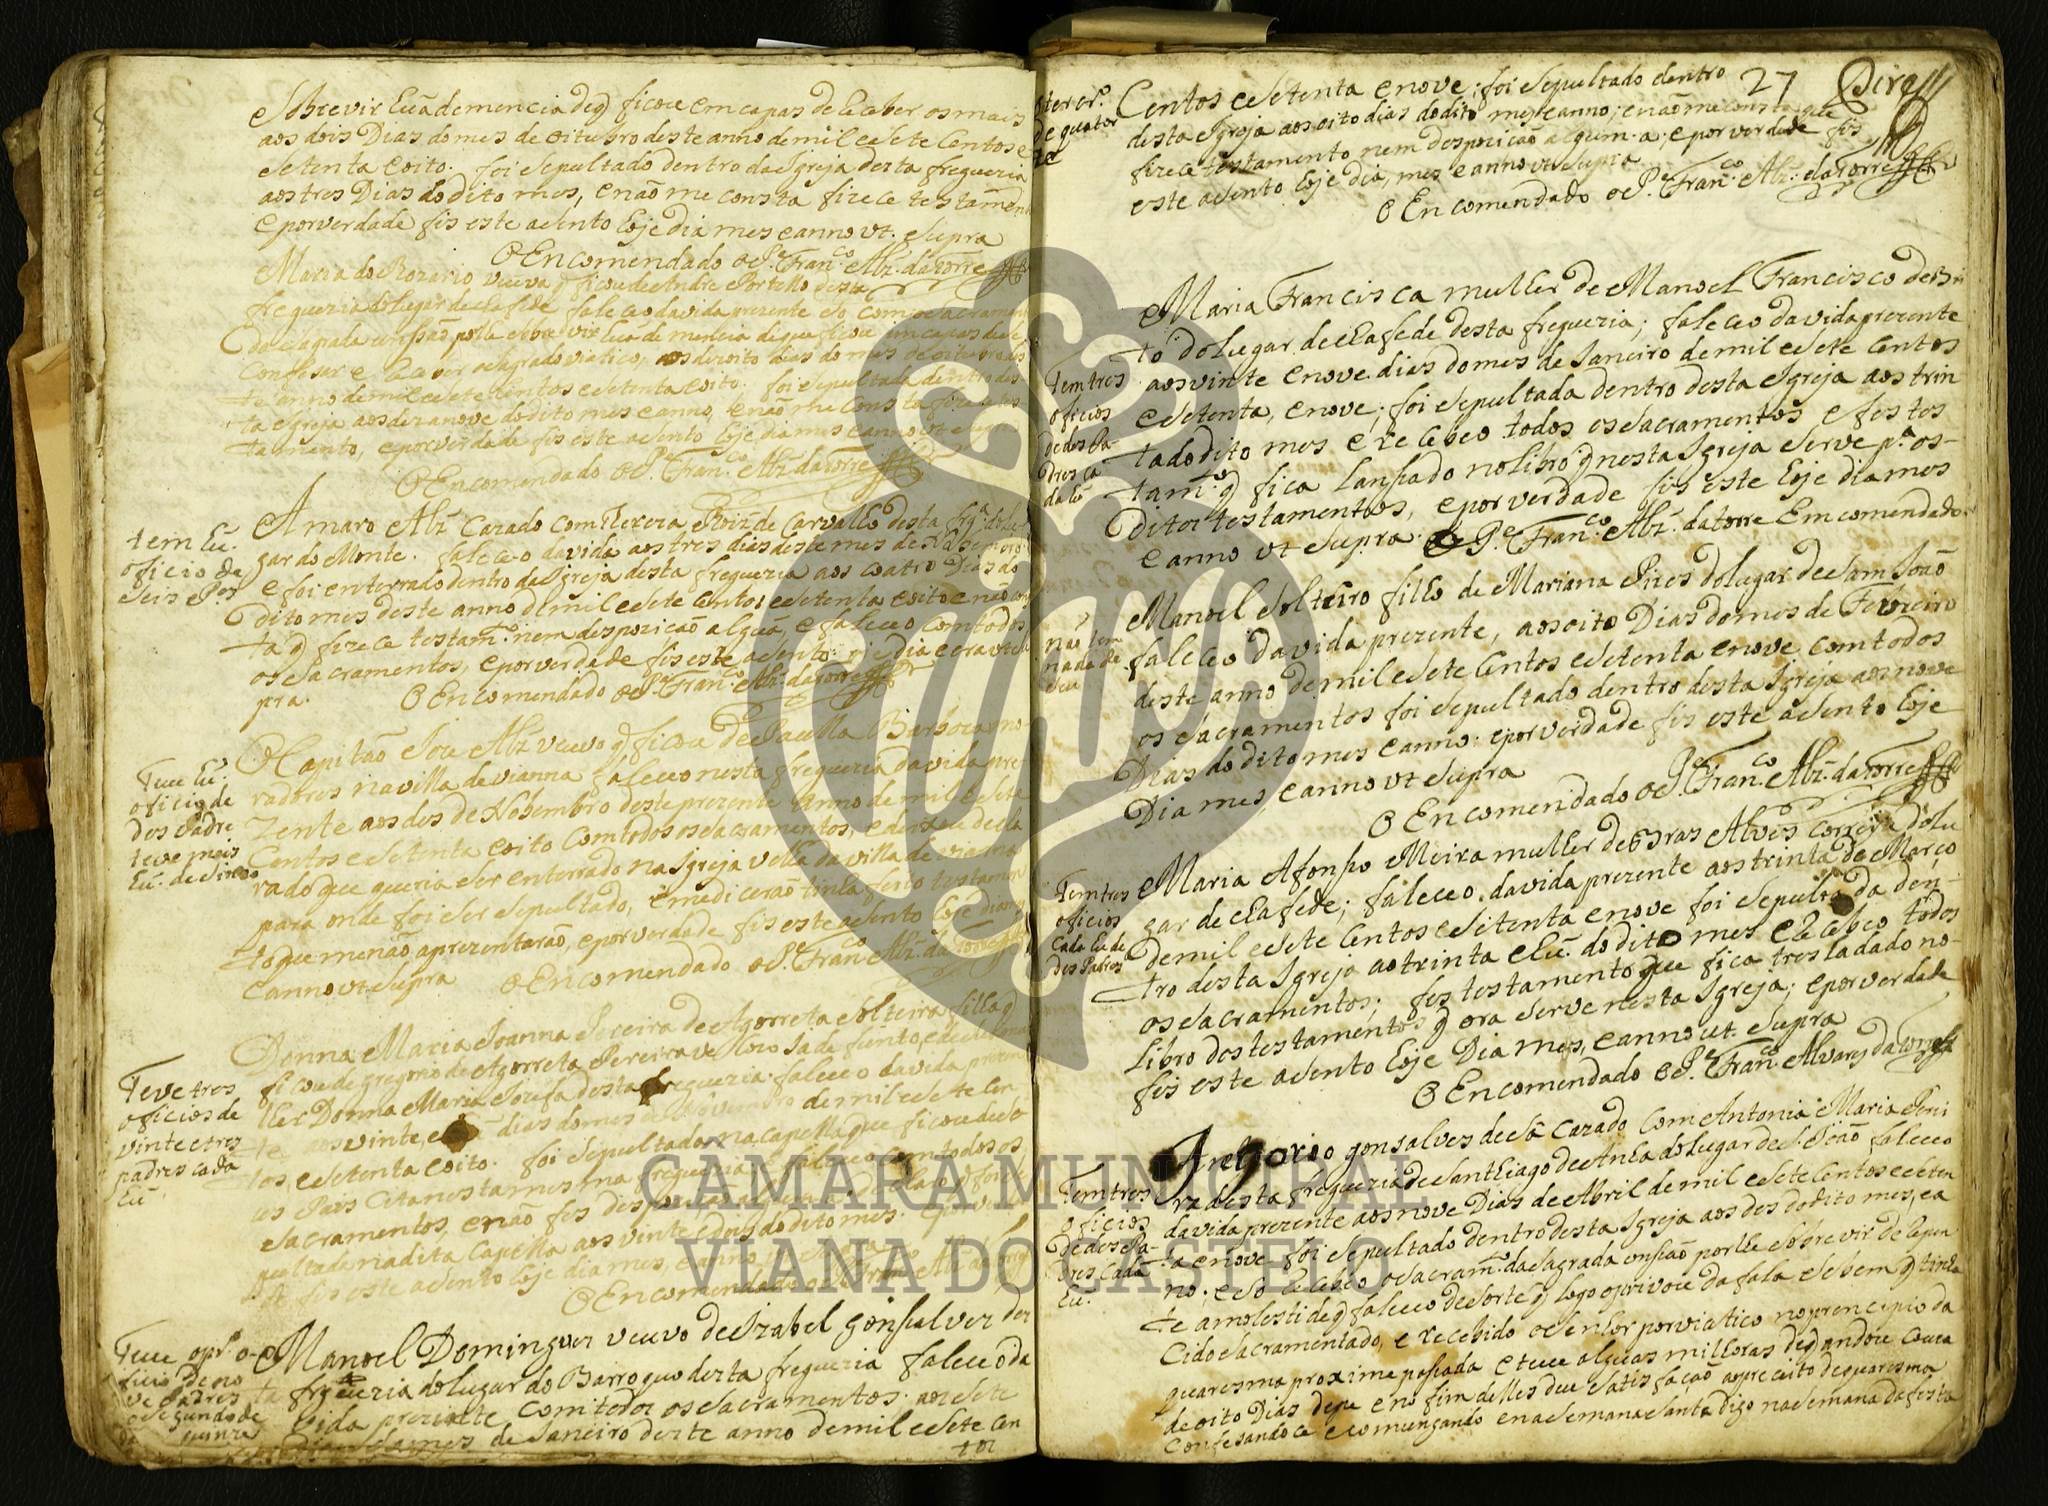 Sobrevir huã demencia de q̃ ficou emcapas de Receber os mais
aos dois Dias do mes de oitubro deste anno de mil e Sete Centos e
Setenta e oito. foi Sepultado dentro da Igreja desta freguezia
aos tres Dias do dito mes, e não me consta fizece testam̃en
e por verdade fis este aSento hoje dia mes e anno vt. Supra
O Encomendado o P.e Fran.co Alz̃. da Torre
Maria do Rozario veuva q̃ ficou de Andre Portello desta
freguezia do lugar de faleceo da vida prezente So com o Sacramen
Confesar e Receber o Sagrado viatico, aos dezoito dias do mes de oitubro des
te anno de mil e Sete Centos e Setenta e oito. foi Sepultada dentro des
ta Igreja aos dezanove do dito mes e anno, e não me Consta fizece tes
tamento, e por verdade fis este aSento hoje dia mes e anno vt Supra
O Encomendado o P.e Fran.co Alz̃ da Torre
tem hũ
oficio de
Seis P.es
Amaro Alz̃ Cazado com Roiz̃ de Carvalho desta frg.a do lu
gar do Monte. faleceo da vida aos tres dias deste mes de
e foi enterrado dentro da Igreja desta freguezia aos coatro Dias do
dito mes deste anno de mil e Sete Centos e Setenta e oito e não con
ta q̃ fizece testam.o nem despozicaõ alguã, e faleceo com todos
os Sacramentos, e por verdade fis este aSento oje dia e era vt Su
pra. O Encomendado o P.e Fran.co Alz̃. da Torre
Teue hũ
oficio de
des Padre
teve mais
hũ. de Sinco
O Capitaõ Alz̃ veuvo q̃ ficou de Barboza mo
radores na villa de vianna faleceo nesta freguezia da vida pre
zente aos des de Novembro deste prezente anno de mil e Sete
Centos e Setenta e oito Com todos os Sacramentos, e deixou decla
rado que queria Ser enterrado na Igreja velha da villa de vianna
para onde foi Ser Sepultado, e me diceraõ tinha feito testamen
to que me naõ aprezentaraõ, e por verdade fis este aSento hoje dia mes
e anno vt Supra O Encomendado o P.e Fran.co Alz̃. da Torre
Teve tres
oficios de
vinte e tres
padres cada
hũ
Donna Maria Joanna Pereira de Agorreta Solteira filha q̃
ficou de gregorio de Agorreta Pereira ja defunto, e de Sua mo
lher Donna Maria Jozefa desta freguezia. faleceo da vida prezen
te aos vinte, e dias do mes de Novembro de mil e Sete Cen
tos, e Setenta e oito. foi Sepultada na Capella que ficou de Se
us Pais Cita nesta mesma freguezia e faleceo com todos os
Sacramentos, e não fes despoziçaõ alguã
pultada na dita Capella aos vinte e dous do dito mes. e por verda
de fis este aSento hoje dia mes, e anno vt Supra
O Encomendado o P.e Fran.co Alz̃ da Torre
Teue o pr.o o
ficio de no
ve Padres
o Segundo de
quinze
Manoel Domingues veuvo de Izabel gonsalves des
ta freguezia do lugar do Barroquo desta freguezia faleceo da
vida prezente com todos os Sacramentos. aos Sete
de Janeiro deste anno de mil e Sete Cen
tos
27
Pires
o tercr.o
de quator
ze
Centos e Setenta e nove; foi Sepultado dentro
desta Igreja aos oito dias do dito mes e anno; e não me consta que
fizece testamento nem despozicaõ algum.a; e por verdade fis
este aSento hoje dia, mes e anno vt Supra
O Encomendado o P.e Fran.co Alz̃. da Torre
Tem tres
oficios
de des Pa-
dres ca
da hũ
Maria Francisca mulher de Manoel Francisco de Bri
to do lugar de desta freguezia; faleceo da vida prezente
aos vinte e nove dias do mes de Janeiro de mil e Sete Centos
e Setenta, e nove; foi Sepultada dentro desta Igreja aos trin
ta do dito mes e recebeo todos os Sacramentos e fes tes
tam.o q̃ fica lansado no libro q̃ nesta Igreja Serve p.a os
ditos testamentos, e por verdade fis este hoje dia mes
e anno vt Supra. o P.e Fran.co Alz̃. da Torre Emcomendado
não tem
nada de
Seu
Manoel Solteiro filho de Mariana Pires do lugar de Sam Joaõ
faleceo da vida prezente, aos oito Dias do mes de Febreiro
deste anno de mil e Sete Centos e Setenta e nove com todos
os Sacramentos foi Sepultado dentro desta Igreja aos nove
Dias do dito mes e anno: e por verdade fis este aSento hoje
Dia mes, e anno vt Supra
O Encomendado o P.e Fran.co Alz̃. da Torre
Tem tres
oficios
Cada hũ de
des Padres
Maria Afonso Meira mulher de Bras Alves Correya do lu
gar de; faleceo da vida prezente aos trinta de Março
de mil e Sete Centos e Setenta e nove foi Sepultada den
tro desta Igreja ao trinta e hũ. do dito mes e Recebeo todos
os Sacramentos; fes testamento que fica tresladado no
libro dos testamentos q̃ ora Serve nesta Igreja; e por verdade
fis este aSento hoje Dia mes, e anno ut. Supra
O Encomendado o P.e Fran.co Alvares da Torre
Tem tres
oficios
de des Pa-
dres Cada
hũ.
gregorio gonsalves de Sá Cazado Com Antonia Maria Perei
ra desta freguezia de Santhiago de Anha do lugar de S. Joaõ faleceo
da vida prezente aos nove Dias de Abril de mil e Sete Centos e Seten
ta e nove foi Sepultado dentro desta Igreja aos des do dito mes, e a
no; e So Recebeo o Sacram.to da Sagrada confisaõ por lhe Sobrevir de Repen
te a molesti de q̃ faleceo de Sorte q̃ logo o privou da fala e Se bem q̃ tinha
Cido Sacramentado, e recebido o Senhor por viatico no prencipio da
quaresma proxima pasada e teue algumas milhoras de q̃ andou couza
de oito Dias de pe e no fim delles deu Satisfaçaõ ao preceito de quaresma
Confesandoce e comungando e na Semana Santa digo na Semana da festa
CÂMARA MUNICIPAL
VIANA DO CASTELO